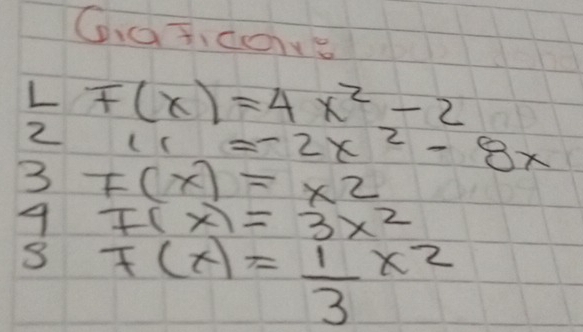 Graficar:
1 F(x) = 4x² - 2
2 " = -2x² - 8x
3 F(x) = x²
4 F(x) = 3x²
5 F(x) = 1/3 x²